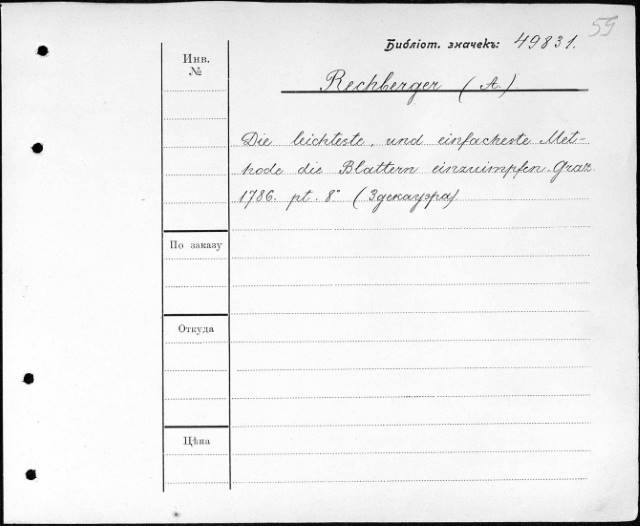 59
Библіот. значекъ: 49831.
Инв.
№
Rechberger (A.)
Die leichteste, und einfacheste Met-
hode die Blattern einzuimpfen. Graz.
1786. pt. 8° (Здекауэра)
По заказу
Откуда
Цѣна